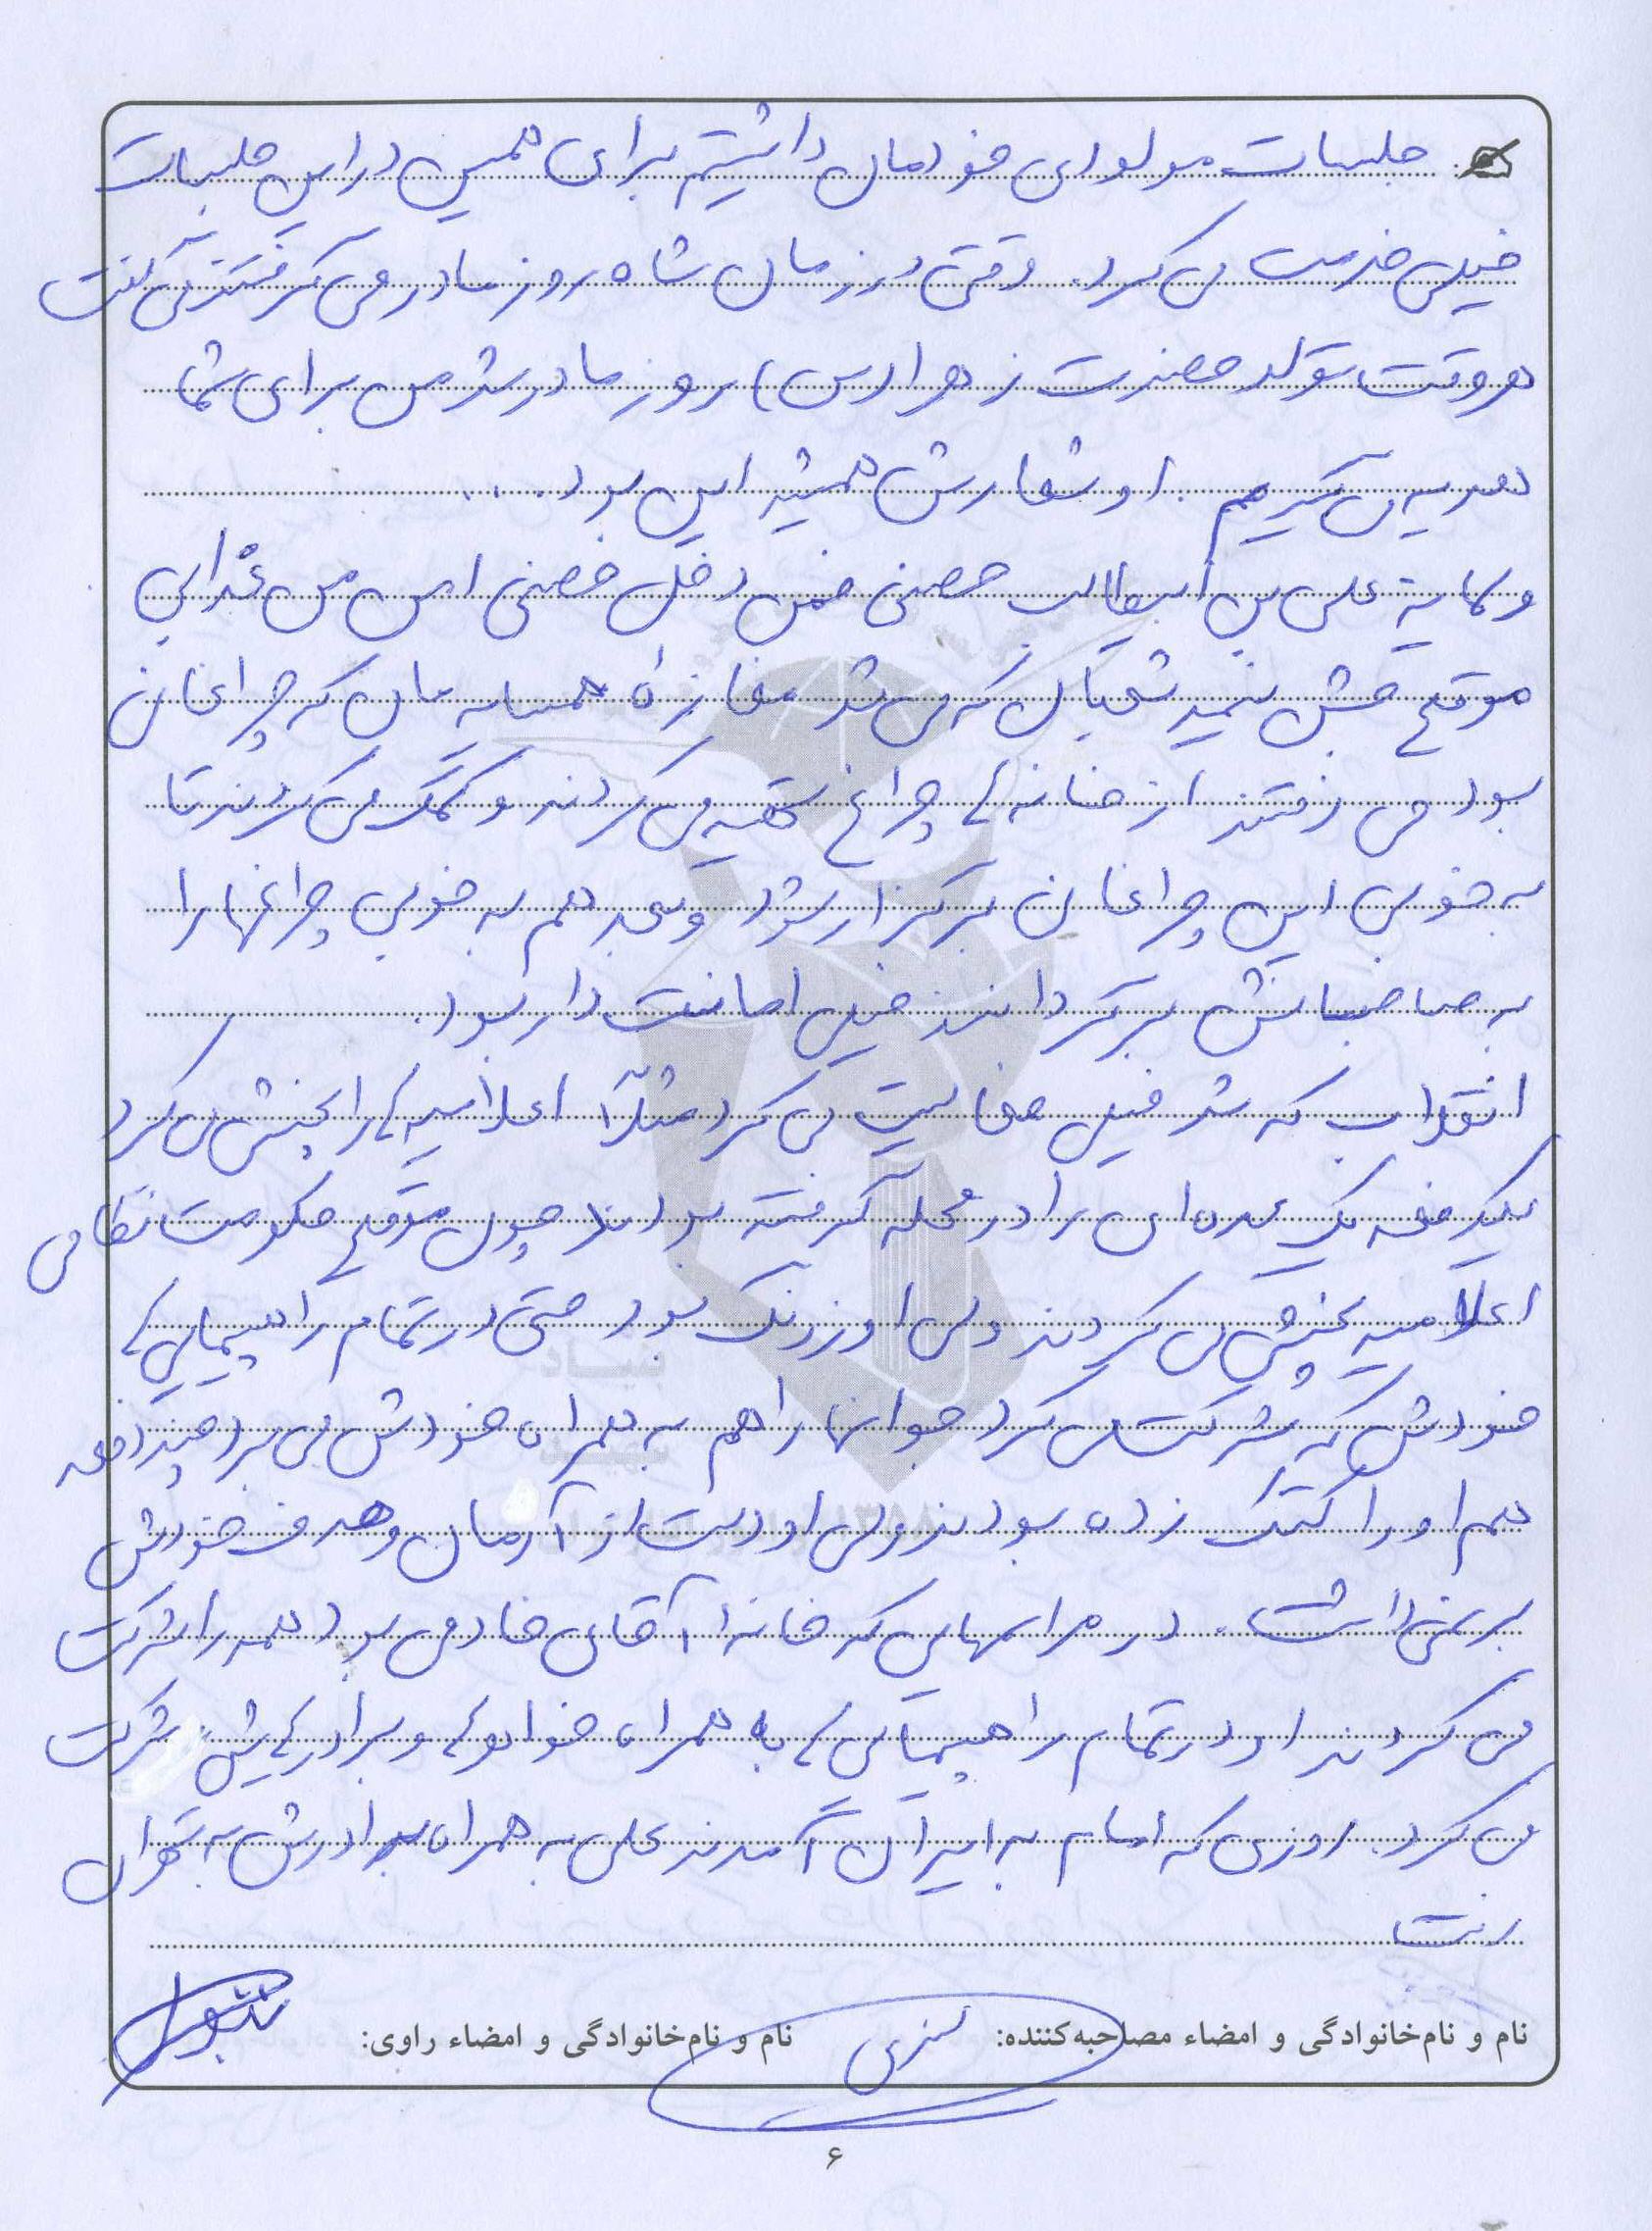 جلسات مولودی خودمان داشتیم برای همین در این جلسات
خیلی خدمت می کرد. وقتی در زمان شاه روز مادر می گرفتند می گفت
هر وقت تولد حضرت زهرا (س) روز مادر شد من برای شما
هدیه می گیرم. او شعارش همیشه این بود. ...
ولایة علی بن ابیطالب حصنی فمن دخل حصنی امن من عذابی
موقع جشن نیمه شعبان که می شد مغازه همسایه مان که چراغان
بود می رفتند از خانه ها چراغ تهیه می کردند و کمک می کردند تا
به خوبی این چراغان برگزار شود و بعد هم به خوبی چراغها را
به صاحبانش برگردانند خیلی امانت دار بود.
انقلاب که شد خیلی فعالیت می کرد مثلاً اعلامیه ها را پخش می کرد
یکدفعه یک عده ای را در محله گرفته بودند چون موقع حکومت نظامی
اعلامیه پخش می کردند ولی او زرنگ بود حتی در تمام راهپیمایی ها
خودش که شرکت می کرد جوانها را هم به همراه خودش می برد چند دفعه
هم او را کتک زده بودند ولی او دست از آرمان و هدف خودش
برنمی داشت. در مراسمهایی که خانه آقای خادمی بود همه را شرکت
می کردند او در تمام راهپیمایی ها به همراه خواهر ها و برادر هایش شرکت
می کرد. روزی که امام به ایران آمدند علی به همراه برادرش به تهران
رفت
نام و نام‌خانوادگی و امضاء مصاحبه‌کننده: نام و نام‌خانوادگی و امضاء راوی:
۶